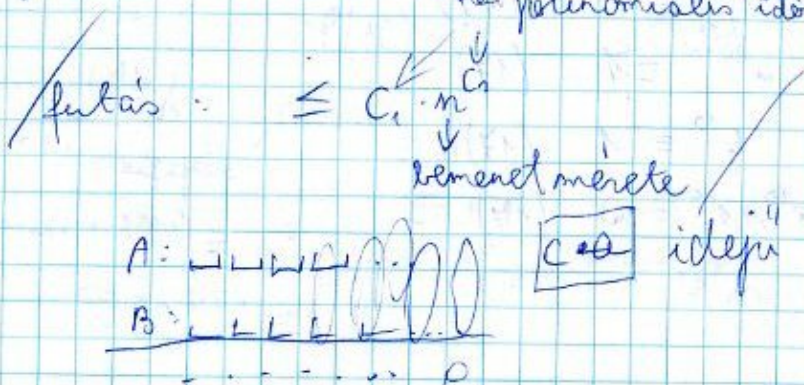 polinomiális idő
futás: ≤ C₁ · n^C₂
bemenet mérete
A: idejű
B: